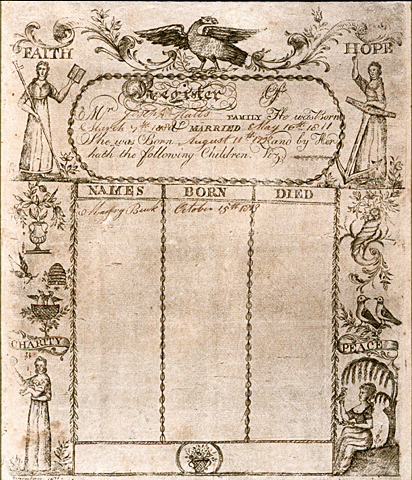 FAITH HOPE
Register Of
Mr Joseph FAMILY He was Born
March 7th MARRIED May 16th 1811
She was Born August 11th and by Her
hath the following Children. Viz
NAMES BORN DIED
October 15th
CHARITY PEACE